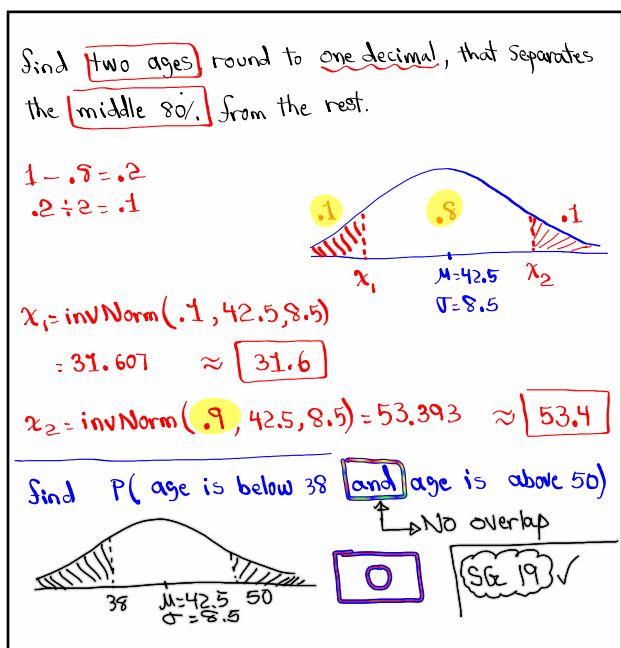 find two ages, round to one decimal, that separates
the middle 80%. from the rest.
1 - .8 = .2
.2 ÷ 2 = .1
.1 .8 .1
x₁ μ=42.5 x₂
σ=8.5
x₁ = invNorm(.1, 42.5, 8.5)
= 31.607 ≈ 31.6
x₂ = invNorm(.9, 42.5, 8.5) = 53.393 ≈ 53.4
find P( age is below 38 and age is above 50)
No overlap
38 μ=42.5 50
σ=8.5
0
SG 19 ✓